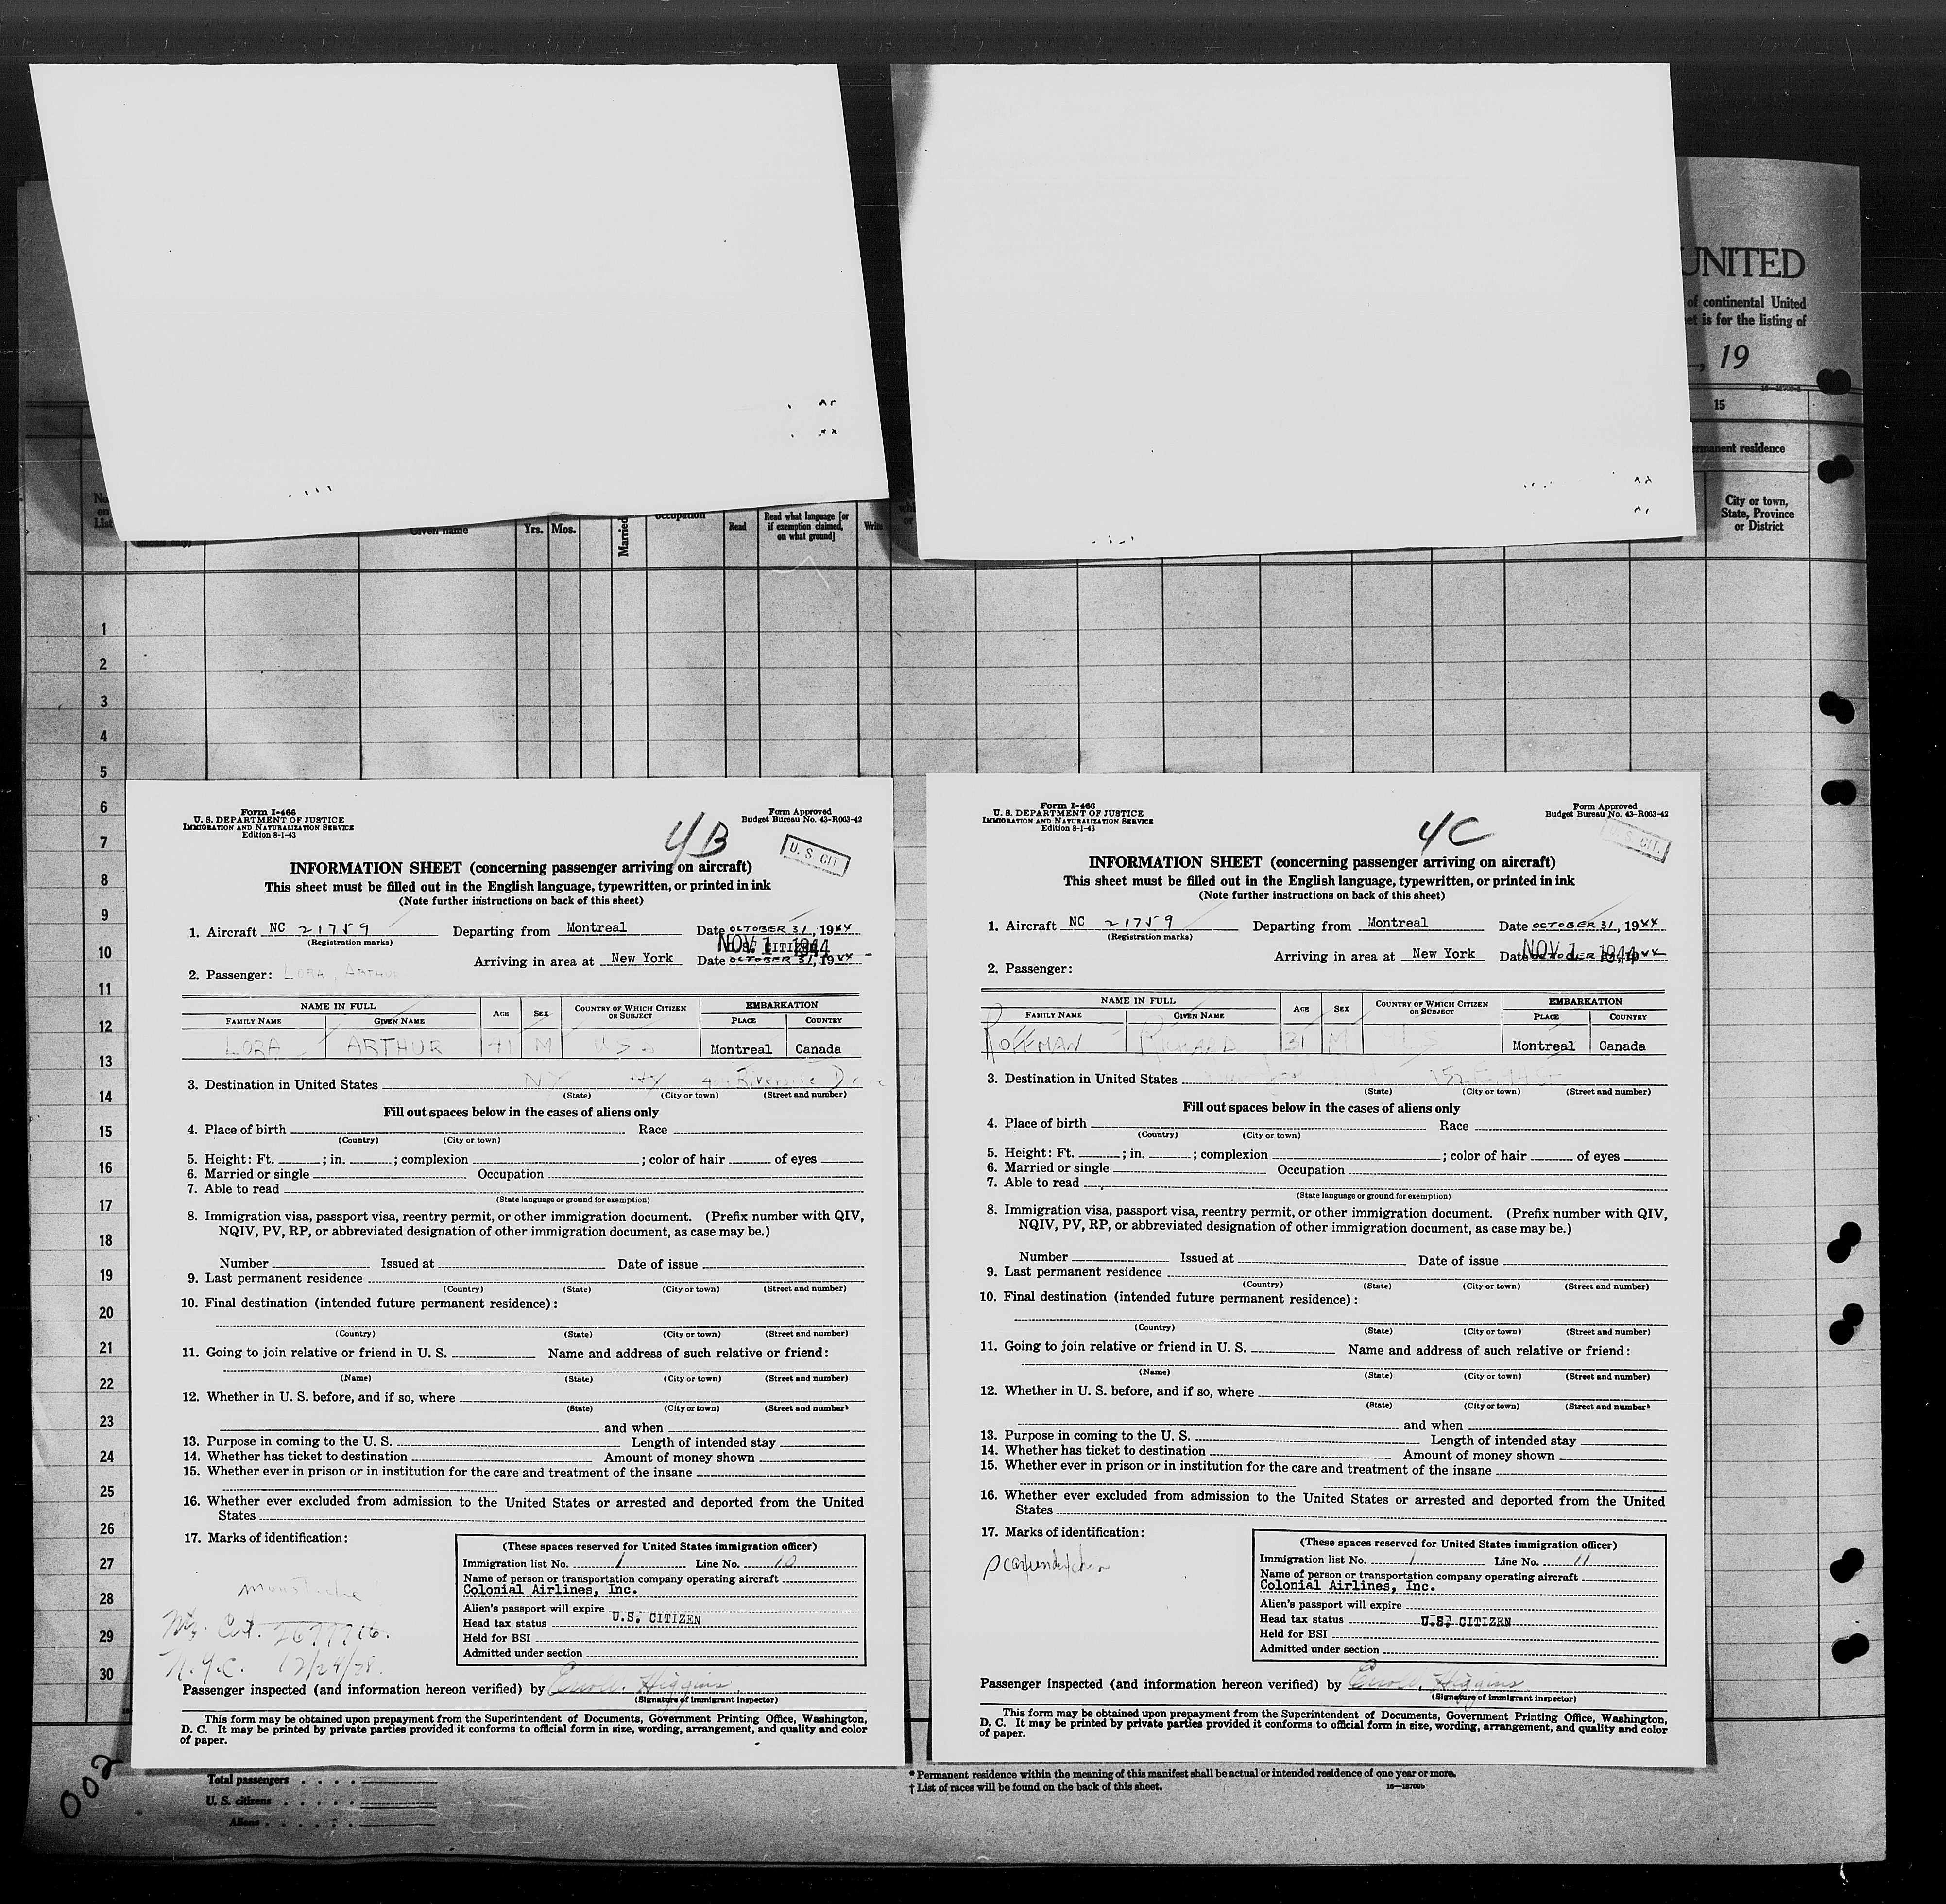 UNITED
of continental United
is for the listing of
, 19
15
residence
City or town,
State, Province
or District
No.
on
List
Given name
Yrs. Mos.
Married
occupation
Read
Read what language [or
if exemption claimed,
on what ground]
Write
1
2
3
4
5
6
7
8
9
10
11
12
13
14
15
16
17
18
19
20
21
22
23
24
25
26
27
28
29
30
Form I-466
U. S. DEPARTMENT OF JUSTICE
IMMIGRATION AND NATURALIZATION SERVICE
Edition 8-1-43
4B
Form Approved
Budget Bureau No. 43-R063-42
U. S. CIT
INFORMATION SHEET (concerning passenger arriving on aircraft)
This sheet must be filled out in the English language, typewritten, or printed in ink
(Note further instructions on back of this sheet)
1. Aircraft NC 21759 Departing from Montreal Date OCTOBER 31, 1944
(Registration marks)
NOV 1 1944
U.S. CITIZEN
Arriving in area at New York Date OCTOBER 31, 1944
2. Passenger: LORA, ARTHUR
NAME IN FULL AGE SEX COUNTRY OF WHICH CITIZEN OR SUBJECT EMBARKATION
FAMILY NAME GIVEN NAME PLACE COUNTRY
LORA ARTHUR 41 M Montreal Canada
3. Destination in United States NY NY Riverside Drive
(State) (City or town) (Street and number)
Fill out spaces below in the cases of aliens only
4. Place of birth Race
(Country) (City or town)
5. Height: Ft. ; in. ; complexion ; color of hair of eyes
6. Married or single Occupation
7. Able to read
(State language or ground for exemption)
8. Immigration visa, passport visa, reentry permit, or other immigration document. (Prefix number with QIV,
NQIV, PV, RP, or abbreviated designation of other immigration document, as case may be.)
Number Issued at Date of issue
9. Last permanent residence
(Country) (State) (City or town) (Street and number)
10. Final destination (intended future permanent residence):
(Country) (State) (City or town) (Street and number)
11. Going to join relative or friend in U. S. Name and address of such relative or friend:
(Name) (State) (City or town) (Street and number)
12. Whether in U. S. before, and if so, where
(State) (City or town) (Street and number)
and when
13. Purpose in coming to the U. S. Length of intended stay
14. Whether has ticket to destination Amount of money shown
15. Whether ever in prison or in institution for the care and treatment of the insane
16. Whether ever excluded from admission to the United States or arrested and deported from the United
States
17. Marks of identification:
moustache
N.Y.C. 12/29/38.
(These spaces reserved for United States immigration officer)
Immigration list No. 1 Line No. 10
Name of person or transportation company operating aircraft
Colonial Airlines, Inc.
Alien's passport will expire
U.S. CITIZEN
Head tax status
Held for BSI
Admitted under section
Passenger inspected (and information hereon verified) by Higgins
(Signature of immigrant inspector)
This form may be obtained upon prepayment from the Superintendent of Documents, Government Printing Office, Washington,
D. C. It may be printed by private parties provided it conforms to official form in size, wording, arrangement, and quality and color
of paper.
Form I-466
U. S. DEPARTMENT OF JUSTICE
IMMIGRATION AND NATURALIZATION SERVICE
Edition 8-1-43
4C
Form Approved
Budget Bureau No. 43-R063-42
CIT.
INFORMATION SHEET (concerning passenger arriving on aircraft)
This sheet must be filled out in the English language, typewritten, or printed in ink
(Note further instructions on back of this sheet)
1. Aircraft NC 21759 Departing from Montreal Date OCTOBER 31, 1944
(Registration marks)
NOV 1 1944
Arriving in area at New York Date OCTOBER 31, 1944
2. Passenger:
NAME IN FULL AGE SEX COUNTRY OF WHICH CITIZEN OR SUBJECT EMBARKATION
FAMILY NAME GIVEN NAME PLACE COUNTRY
ROFFMAN RICHARD 31 M Montreal Canada
3. Destination in United States
(State) (City or town) (Street and number)
Fill out spaces below in the cases of aliens only
4. Place of birth Race
(Country) (City or town)
5. Height: Ft. ; in. ; complexion ; color of hair of eyes
6. Married or single Occupation
7. Able to read
(State language or ground for exemption)
8. Immigration visa, passport visa, reentry permit, or other immigration document. (Prefix number with QIV,
NQIV, PV, RP, or abbreviated designation of other immigration document, as case may be.)
Number Issued at Date of issue
9. Last permanent residence
(Country) (State) (City or town) (Street and number)
10. Final destination (intended future permanent residence):
(Country) (State) (City or town) (Street and number)
11. Going to join relative or friend in U. S. Name and address of such relative or friend:
(Name) (State) (City or town) (Street and number)
12. Whether in U. S. before, and if so, where
(State) (City or town) (Street and number)
and when
13. Purpose in coming to the U. S. Length of intended stay
14. Whether has ticket to destination Amount of money shown
15. Whether ever in prison or in institution for the care and treatment of the insane
16. Whether ever excluded from admission to the United States or arrested and deported from the United
States
17. Marks of identification:
scar under chin
(These spaces reserved for United States immigration officer)
Immigration list No. 1 Line No. 11
Name of person or transportation company operating aircraft
Colonial Airlines, Inc.
Alien's passport will expire
Head tax status U.S. CITIZEN
Held for BSI
Admitted under section
Passenger inspected (and information hereon verified) by Higgins
(Signature of immigrant inspector)
This form may be obtained upon prepayment from the Superintendent of Documents, Government Printing Office, Washington,
D. C. It may be printed by private parties provided it conforms to official form in size, wording, arrangement, and quality and color
of paper.
002
Total passengers
U. S. citizens
Aliens
* Permanent residence within the meaning of this manifest shall be actual or intended residence of one year or more.
† List of races will be found on the back of this sheet.